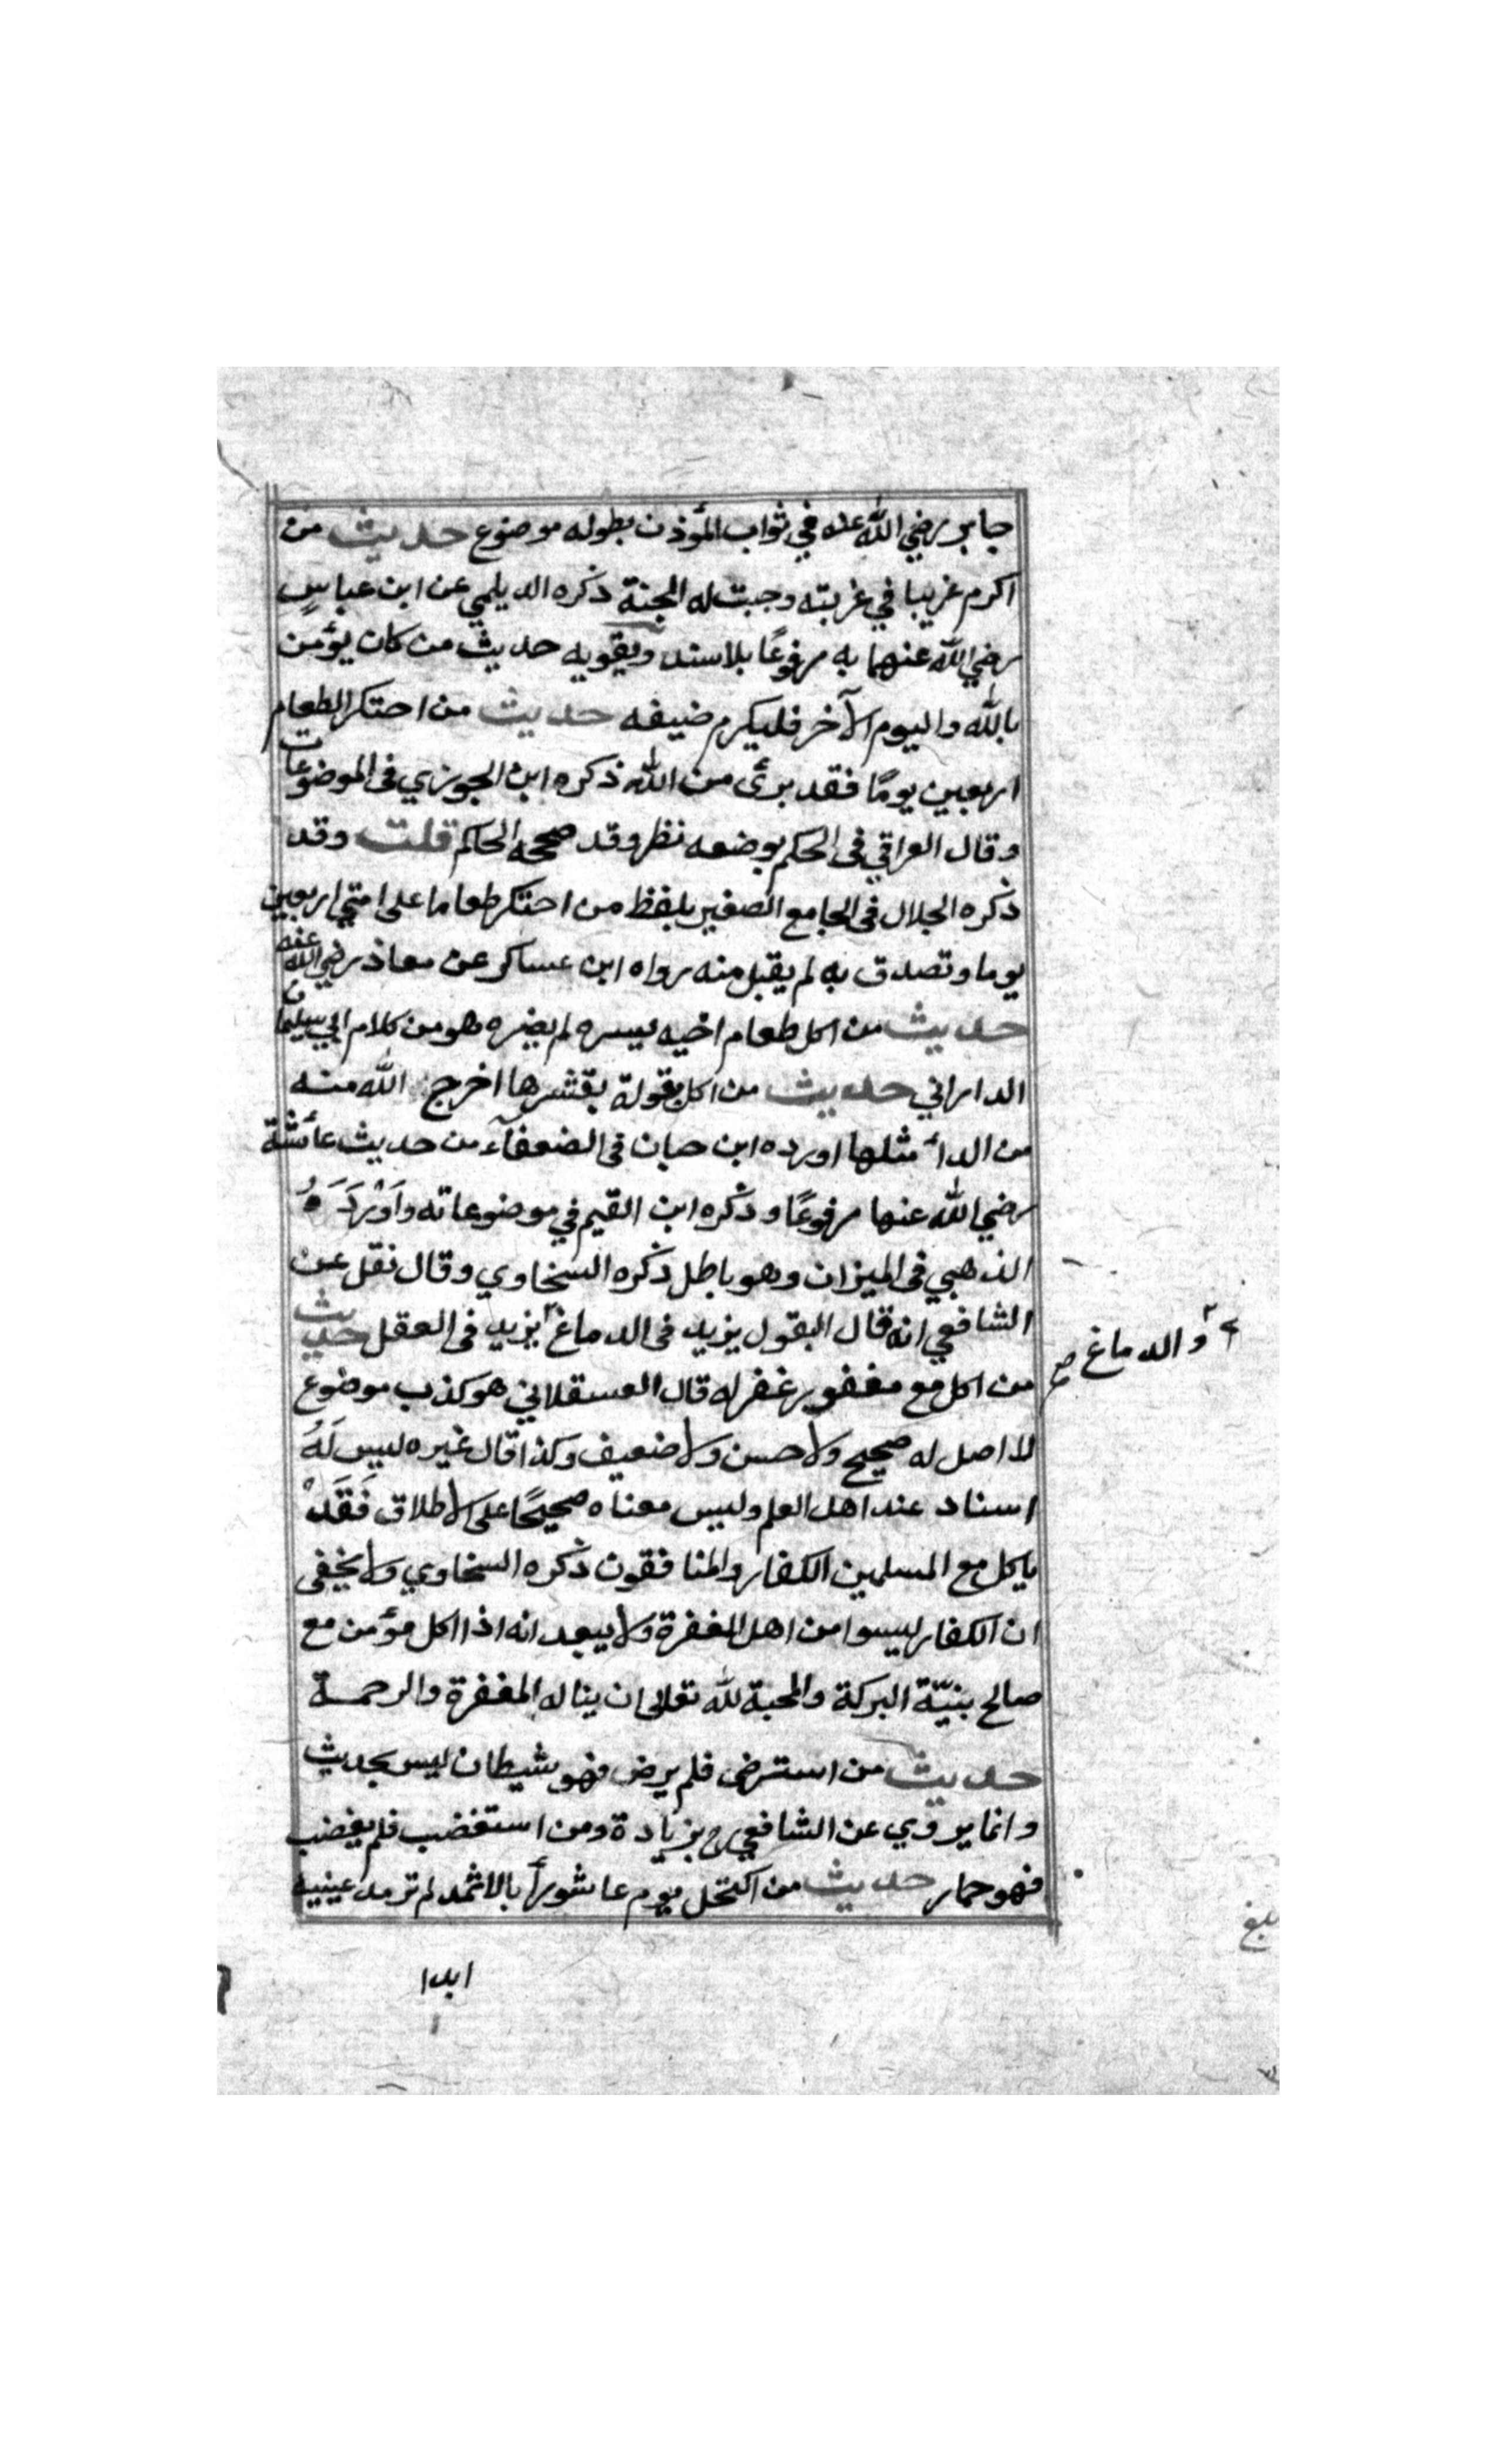 جابر رضي الله عنه في ثواب المؤذن بطوله موضوع حديث من
اكرم غريبا في غربته وجبت له الجنة ذكره الديلمي عن ابن عباس
رضي الله عنهما به مرفوعًا بلا سند ويقويه حديث من كان يؤمن
بالله واليوم الآخر فليكرم ضيفه حديث من احتكر الطعام
اربعين يومًا فقد برئ من الله ذكره ابن الجوزي في الموضوعات
وقال العراقي في الحكم بوضعه نظر وقد صححه الحاكم قلت وقد
ذكره الجلال في الجامع الصغير بلفظ من احتكر طعاما على امتي اربعين
يوما وتصدق به لم يقبل منه رواه ابن عساكر عن معاذ رضي الله عنه
حديث من اكل طعام اخيه ليسره لم يضره هو من كلام ابي سليمان
الداراني حديث من اكل بقولة بقشرها اخرج الله منه
من الدأ مثلها اورده ابن حبان في الضعفاء من حديث عائشة
رضي الله عنها مرفوعًا وذكره ابن القيم في موضوعاته وَاَوْرَدَهُ
الذهبي في الميزان وهو باطل ذكره السخاوي وقال نقل عن
الشافعي انه قال البقول يزيد في الدماغ يزيد في العقل حديث
والدماغ صح
من اكل مع مغفور غفر له قال العسقلاني هو كذب موضوع
لا اصل له صحيح ولا حسن ولا ضعيف وكذا قال غيره ليس لَهُ
اسناد عند اهل العلم وليس معناه صحيحًا على الاطلاق فَقَدْ
ياكل مع المسلمين الكفار والمنافقون ذكره السخاوي ولا يخفى
ان الكفار ليسوا من اهل المغفرة ولا يبعد انه اذا اكل مؤمن مع
صالح بنيّة البركة والمحبة لله تعالى ان يناله المغفرة والرحمة
حديث من استرضى فلم يرض فهو شيطان ليس بحديث
وانما يروي عن الشافعي رح بزيادة ومن استغضب فلم يغضب
فهو حمار حديث من اكتحل يوم عاشورأ بالاثمد لم ترمد عينيه
ابدا
بلغ